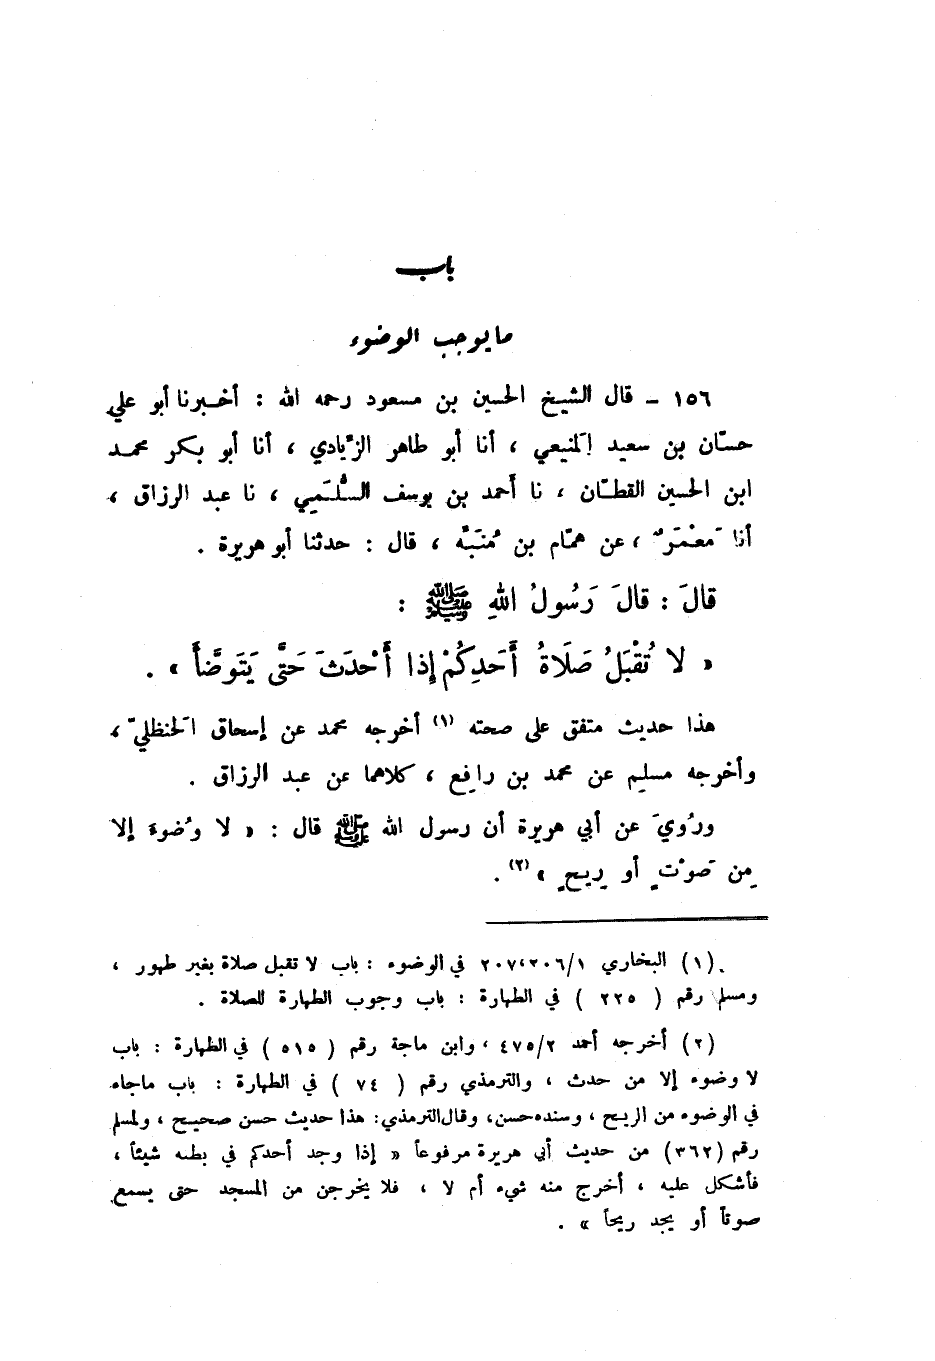 باب
ما يوجب الوضوء
١٥٦ ــ قال الشيخ الحسين بن مسعود رحمه الله : أخبرنا أبو علي
حسّان بن سعيد المَنيعي ، أنا أبو طاهر الزّيادي ، أنا أبو بكر محمد
ابن الحسين القطّان ، نا أَحمد بن يوسف السُّلَمي ، نا عبد الرزاق ،
أنا مَعْمَرٌ ، عن همّام بن مُنَبِّه ، قال : حدثنا أبو هريرة .
قالَ : قالَ رَسُولُ اللهِ ﷺ :
« لا تُقْبَلُ صَلَاةُ أَحَدِكُمْ إِذا أَحْدَثَ حَتَّى يَتَوضَّأَ » .
هذا حديث متفق على صحته (١) أخرجه محمد عن إسحاق الحَنظليّ ،
وأخرجه مسلم عن محمد بن رافع ، كلاهما عن عبد الرزاق .
ورُويَ عن أبي هريرة أن رسول الله ﷺ قال : « لا وُضوءَ إلا
مِن صَوْتٍ أو رِيحٍ » (٢) .
(١) البخاري ٢٠٦/١ ، ٢٠٧ في الوضوء : باب لا تقبل صلاة بغير طهور ،
ومسلم رقم ( ٢٢٥ ) في الطهارة : باب وجوب الطهارة للصلاة .
(٢) أخرجه أحمد ٤٧٥/٢ ، وابن ماجة رقم ( ٥١٥ ) في الطهارة : باب
لا وضوء إلا من حدث ، والترمذي رقم ( ٧٤ ) في الطهارة : باب ماجاء
في الوضوء من الريح ، وسنده حسن ، وقال الترمذي : هذا حديث حسن صحيح ، ولمسلم
رقم (٣٦٢) من حديث أبي هريرة مرفوعاً « إذا وجد أحدكم في بطنه شيئاً ،
فأشكل عليه ، أخرج منه شيء أم لا ، فلا يخرجن من المسجد حتى يسمع
صوتاً أو يجد ريحاً » .